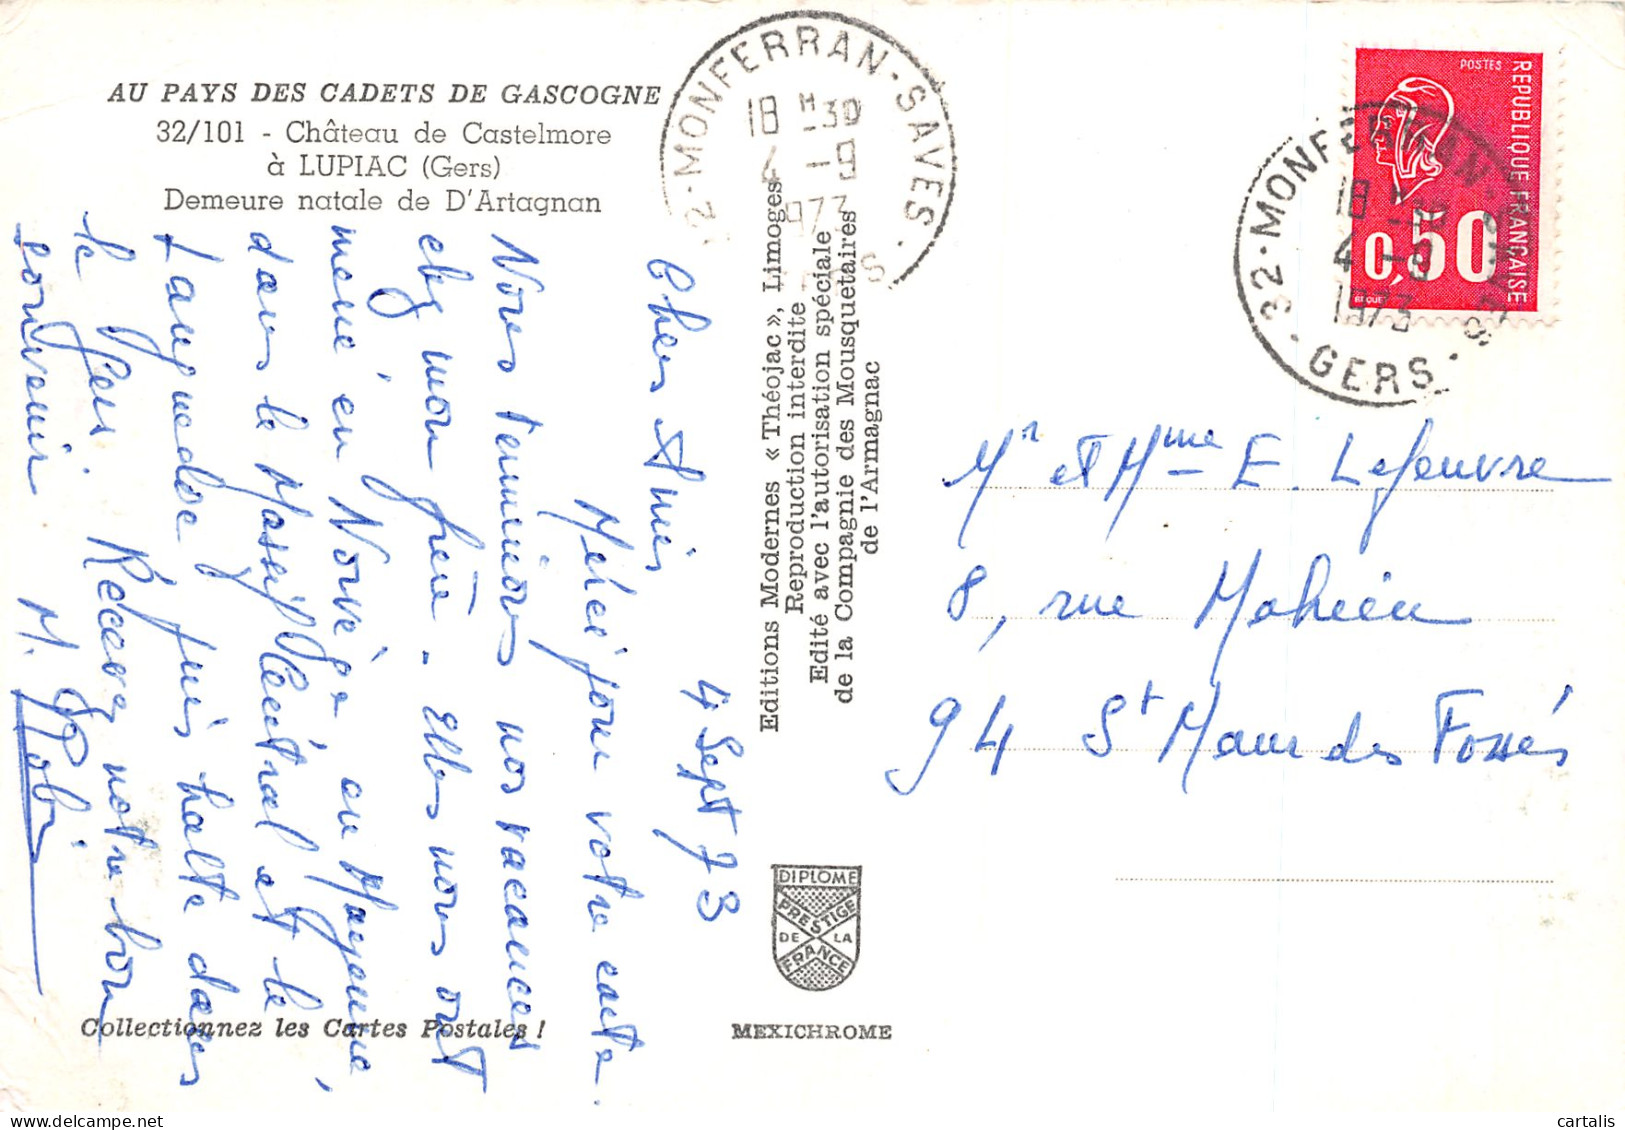 AU PAYS DES CADETS DE GASCOGNE
32/101 - Château de Castelmore
à LUPIAC (Gers)
Demeure natale de D'Artagnan
4 Sept 73
Chers Amis
Merci pour votre carte.
Nous terminons nos vacances
chez mon frère. Elles nous ont
mené en Norvège, en Mayenne,
dans le Massif Central et le
Languedoc puis halte dans
le Gers. Recevez notre bon
souvenir
Editions Modernes « Théojac », Limoges
Reproduction interdite
Edité avec l'autorisation spéciale
de la Compagnie des Mousquetaires
de l'Armagnac
DIPLOME
PRESTIGE
DE LA
FRANCE
MEXICHROME
Collectionnez les Cartes Postales !
32 · MONFERRAN-SAVES ·
18 H 30
4 -9
1973
POSTES
REPUBLIQUE FRANÇAISE
0,50
BEQUET
32 · MONFERRAN-SAVES
18 H 30
4 -9
1973
· GERS ·
Mr et Mme E. Lefeuvre
8, rue Mahieu
94 St Maur des Fossés
cartalis